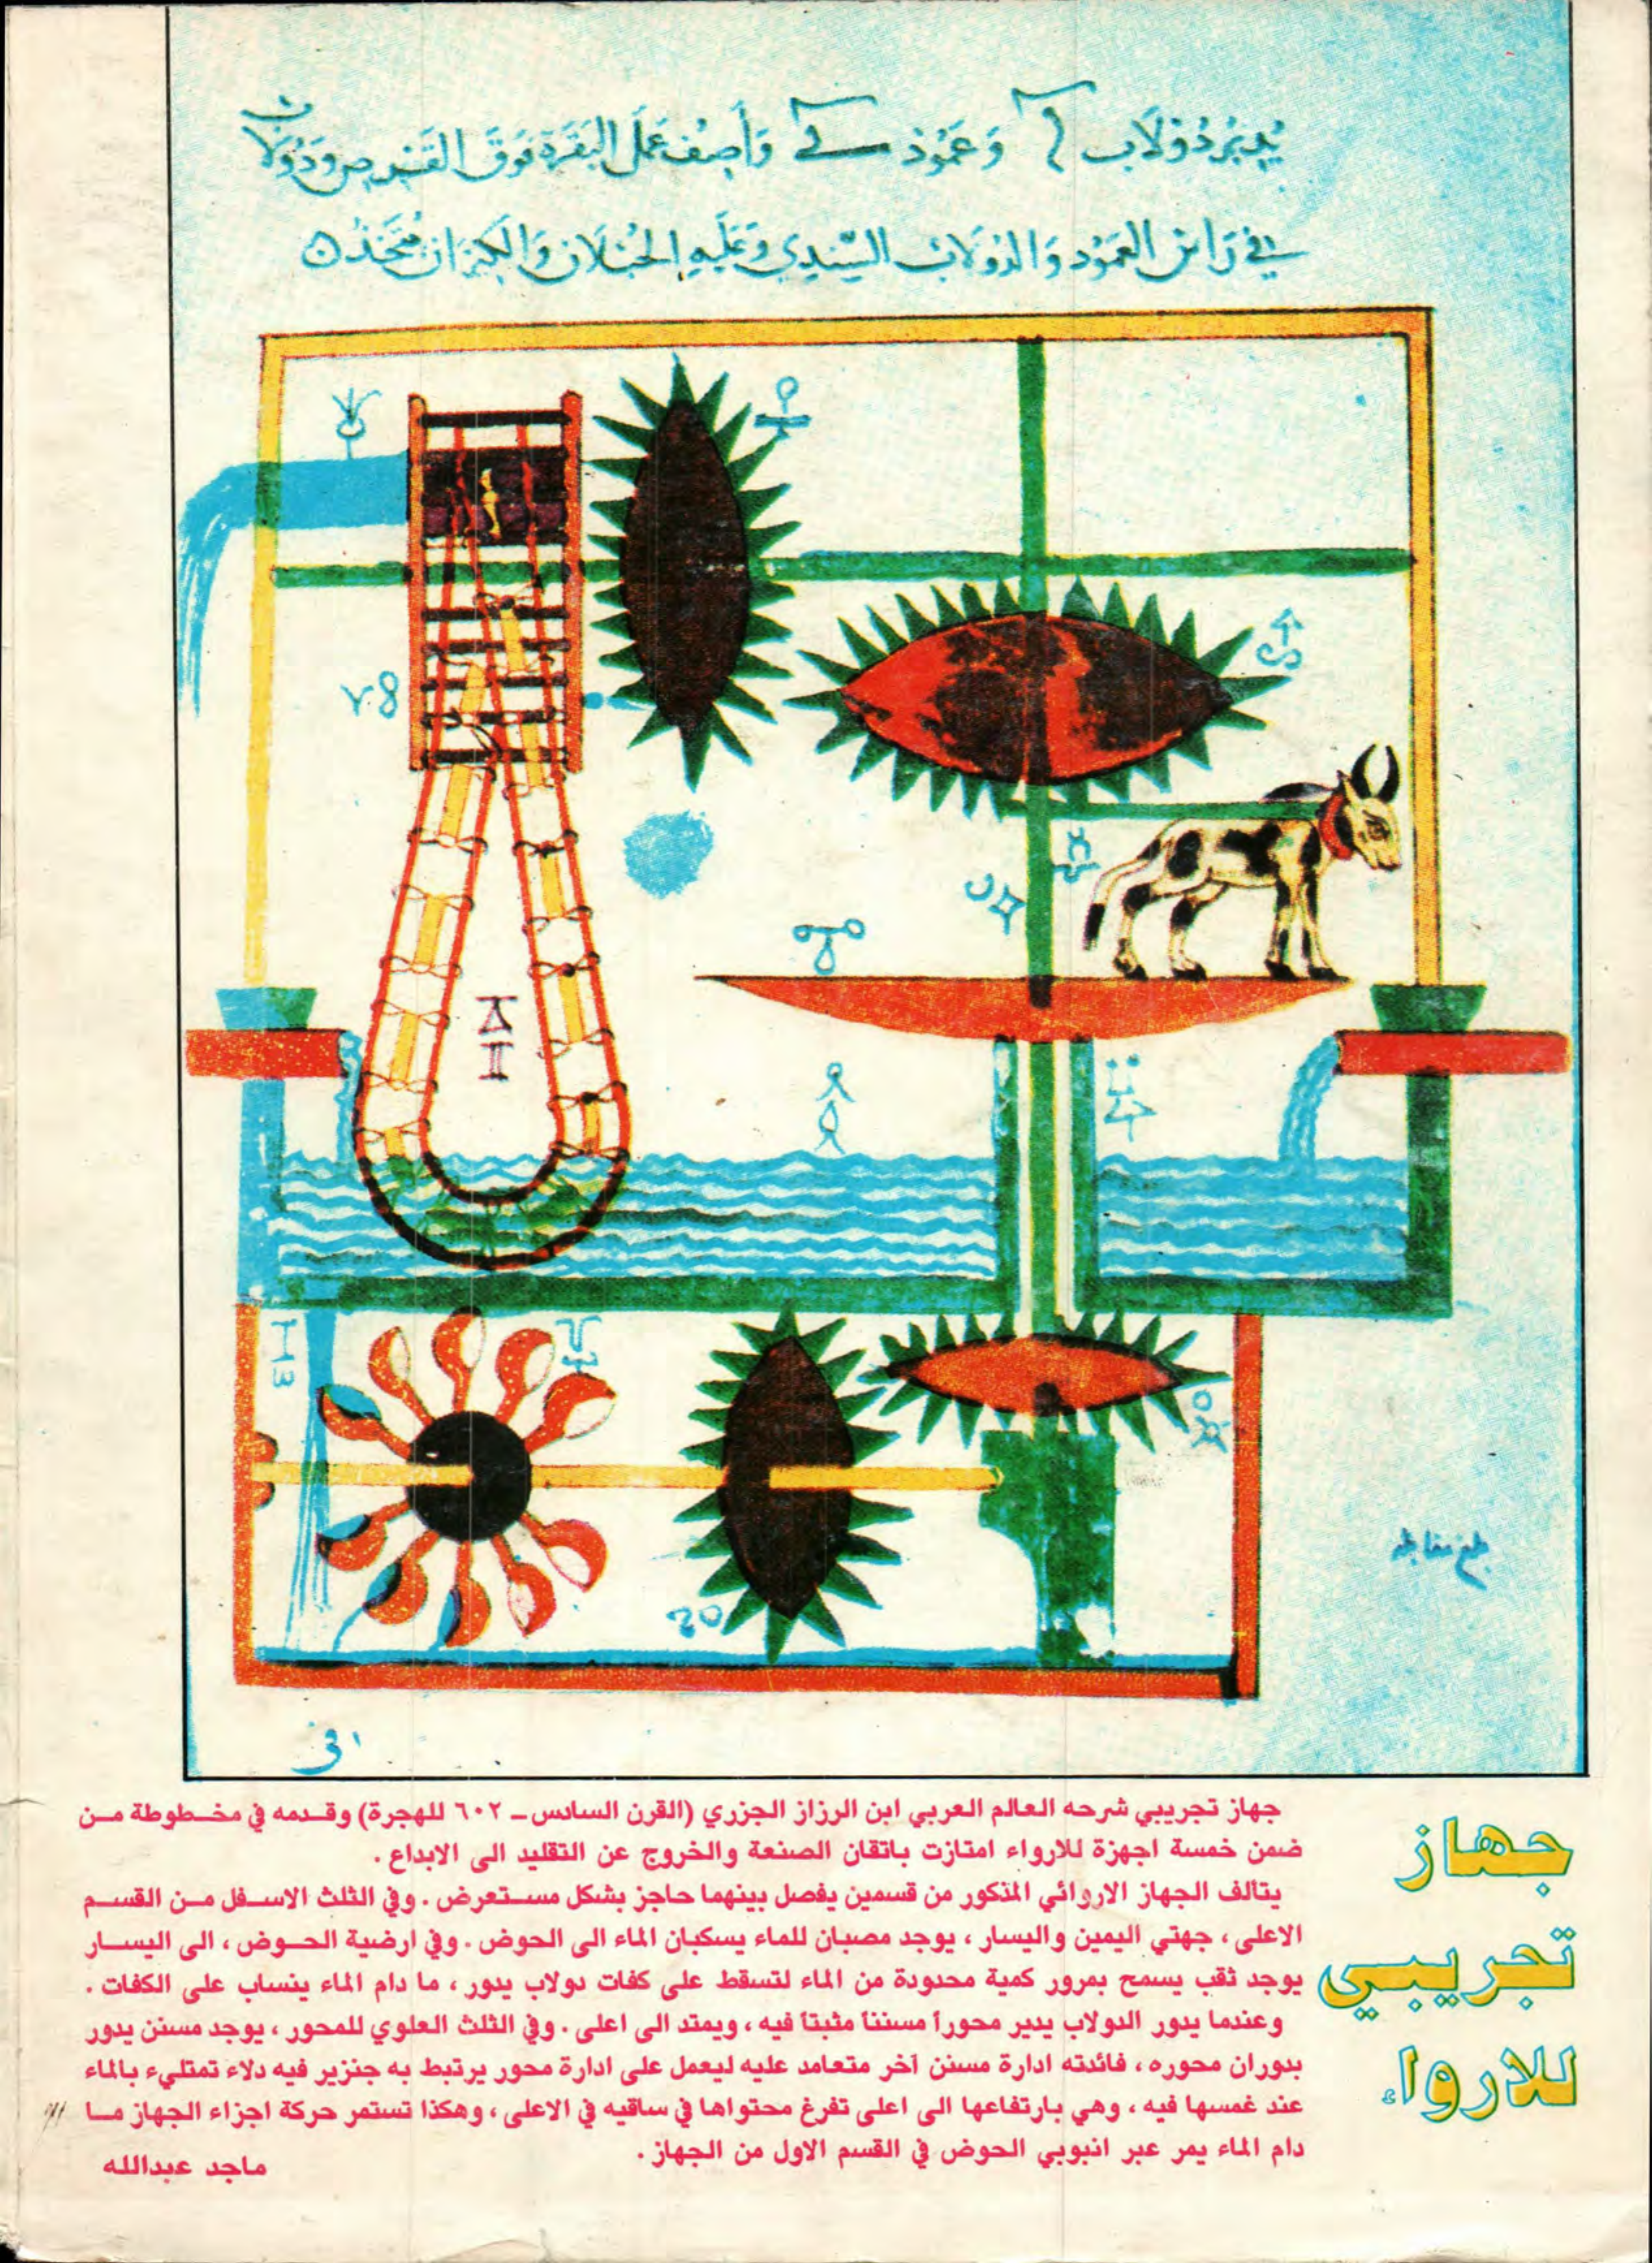 يدير دولاب وعمود وأصف عمل البقرة فوق القرص ودولاب
في رأس العمود والدولاب السندي وعليه الحبلان والكيزان متحدان
بلغ مقابله
جهاز
تجريبي
للارواء
جهاز تجريبي شرحه العالم العربي ابن الرزاز الجزري (القرن السادس ـ ٦٠٢ للهجرة) وقدمه في مخطوطة من
ضمن خمسة اجهزة للارواء امتازت باتقان الصنعة والخروج عن التقليد الى الابداع .
يتألف الجهاز الاروائي المذكور من قسمين يفصل بينهما حاجز بشكل مستعرض . وفي الثلث الاسفل من القسم
الاعلى ، جهتي اليمين واليسار ، يوجد مصبان للماء يسكبان الماء الى الحوض . وفي ارضية الحوض ، الى اليسار
يوجد ثقب يسمح بمرور كمية محدودة من الماء لتسقط على كفات دولاب يدور ، ما دام الماء ينساب على الكفات .
وعندما يدور الدولاب يدير محوراً مسنناً مثبتاً فيه ، ويمتد الى اعلى . وفي الثلث العلوي للمحور ، يوجد مسنن يدور
بدوران محوره ، فائدته ادارة مسنن آخر متعامد عليه ليعمل على ادارة محور يرتبط به جنزير فيه دلاء تمتليء بالماء
عند غمسها فيه ، وهي بارتفاعها الى اعلى تفرغ محتواها في ساقيه في الاعلى ، وهكذا تستمر حركة اجزاء الجهاز ما
دام الماء يمر عبر انبوبي الحوض في القسم الاول من الجهاز .
ماجد عبدالله